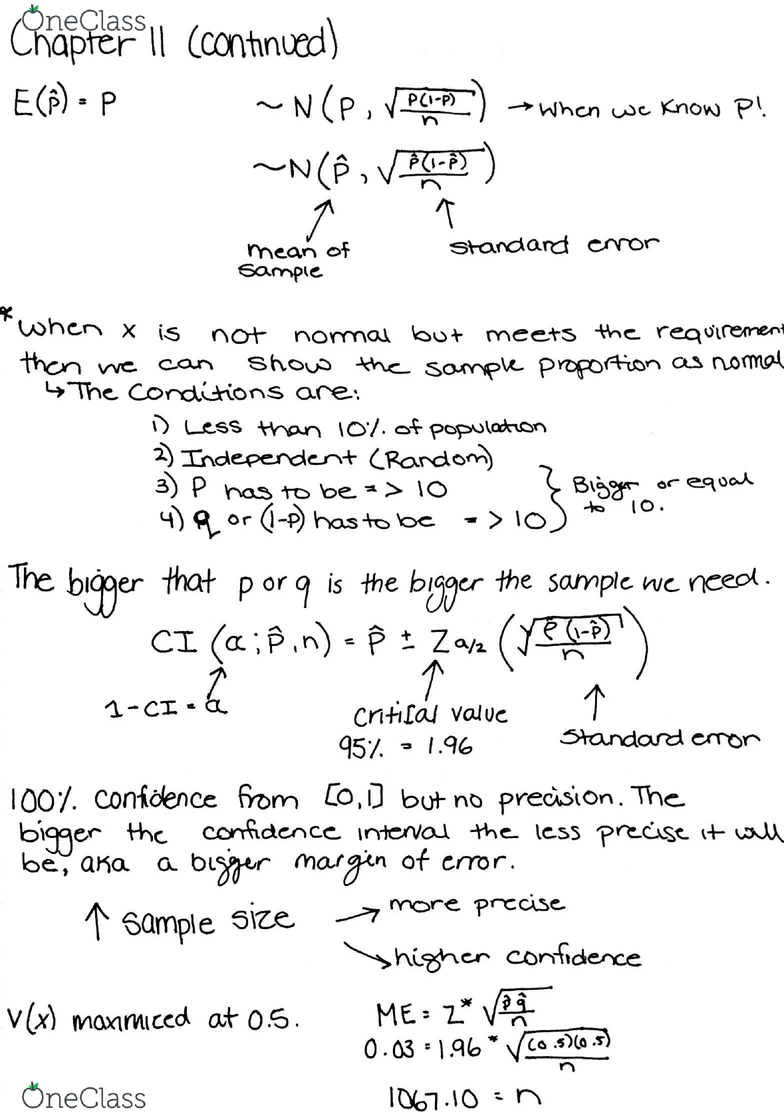 OneClass
Chapter 11 (continued)
E(p̂) = P ~N(P, √P(1-P)/n) → When we know P!
~N(p̂, √p̂(1-p̂)/n)
mean of sample
standard error
*When x is not normal but meets the requirement
then we can show the sample proportion as normal
↳ The conditions are:
1) Less than 10% of population
2) Independent (Random)
3) P has to be => 10
4) q or (1-p) has to be => 10
} Bigger or equal
to 10.
The bigger that p or q is the bigger the sample we need.
CI (α; p̂, n) = p̂ ± Z a/2 (√p̂(1-p̂)/n)
1-CI = α
Critical value
95% = 1.96
Standard error
100% confidence from [0,1] but no precision. The
bigger the confidence interval the less precise it will
be, aka a bigger margin of error.
↑ sample size → more precise
↘ higher confidence
V(x) maximized at 0.5.
ME = Z* √p̂q̂/n
0.03 = 1.96 * √(0.5)(0.5)/n
1067.10 = n
OneClass